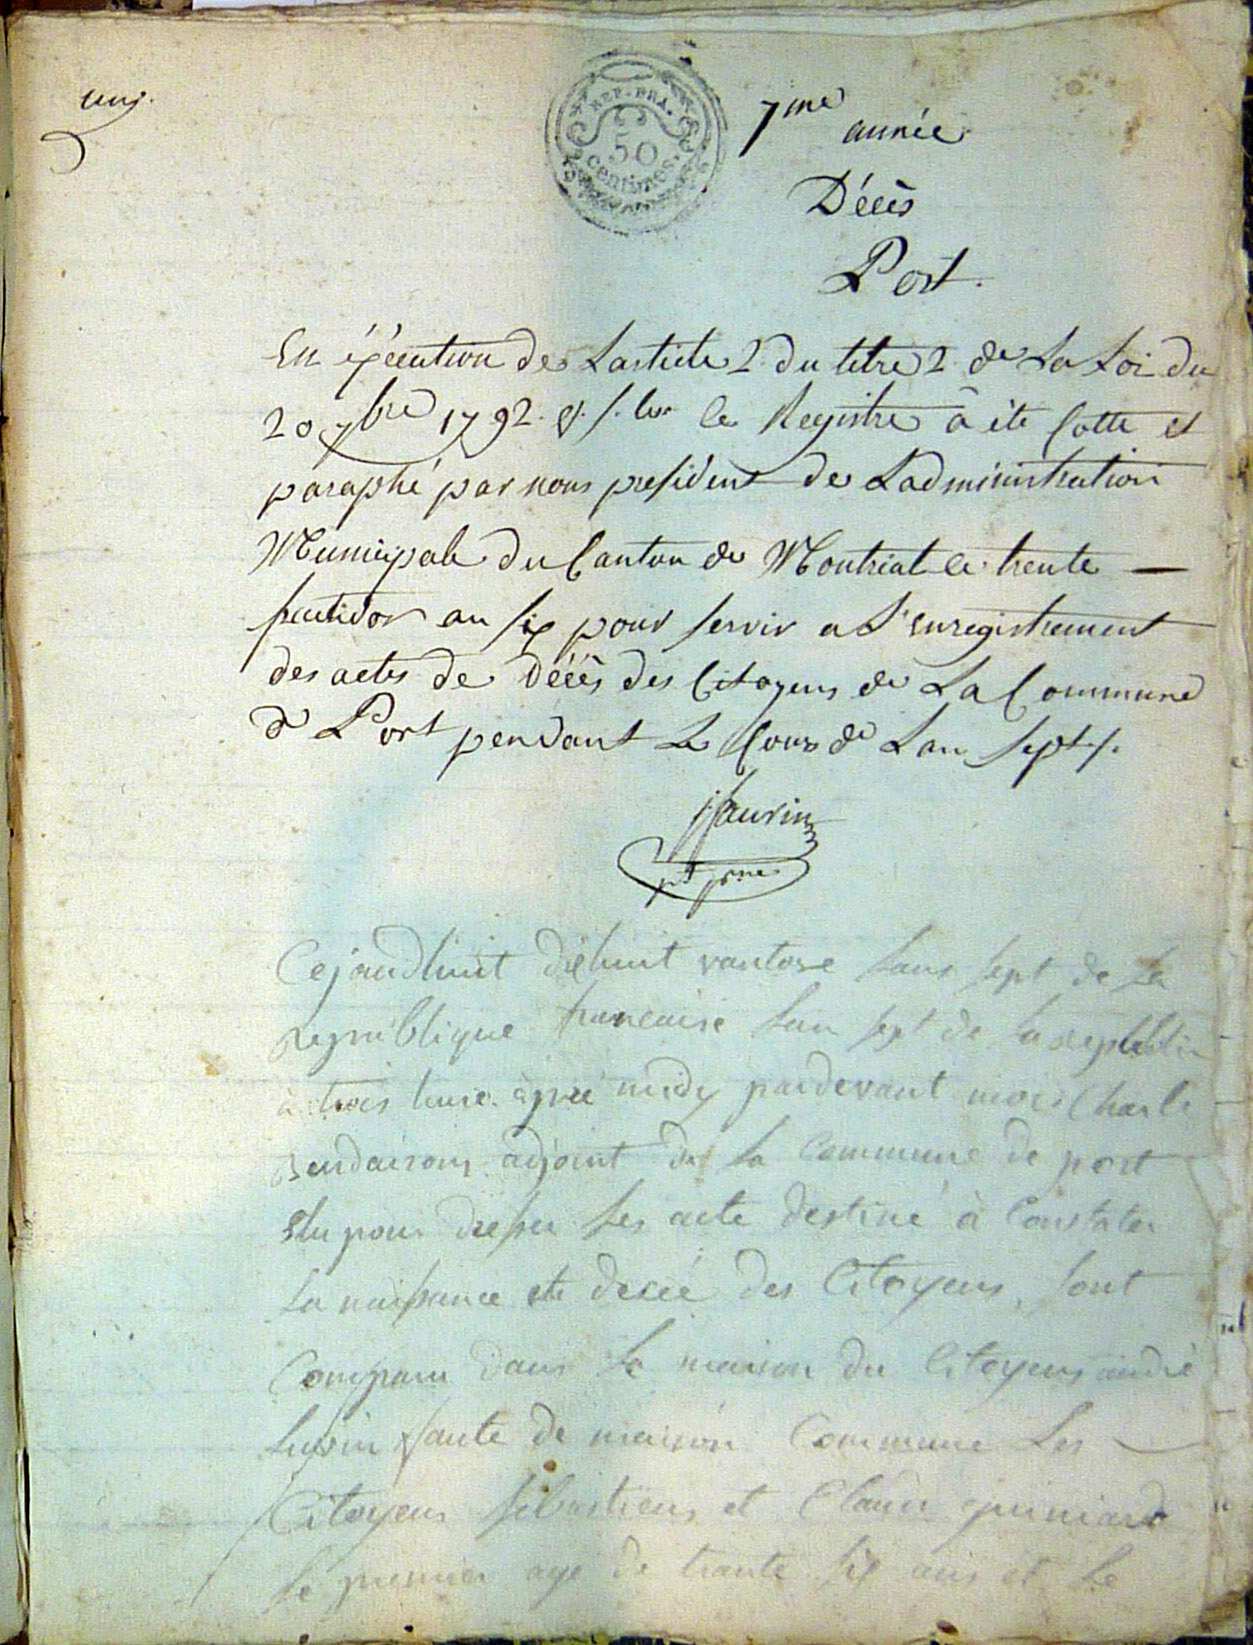 un
REP. FRA.
50
centimes.
7me année
Décès
Port.
En éxécution de Larticle 2 du titre 2 de La Loi du
20 7bre 1792. le Registre à été Cotté et
paraphé par nous president de Ladministration
Municipale du Canton de Montréal le trente —
fructidor an six pour servir a L'enregistrement
des actes de Décès des Citoyens de La Commune
de Port pendant Le Cours de Lan Sept /.
Saurin
Cejourdhuit dixhuit vantose Lans sept de La
Republique francaise Lan sept de La republi
a trois heure après midy pardevant moi Charle
adjoint de La Commune de port
Elu pour dresser Les acte destiné à Constater
La naissance et decée des Citoyens, sont
Comparu dans La maison du Citoyens andré
faute de maison Commune Les
Citoyens Sebastiens et Claude
Le premier age de trante six ans et Le